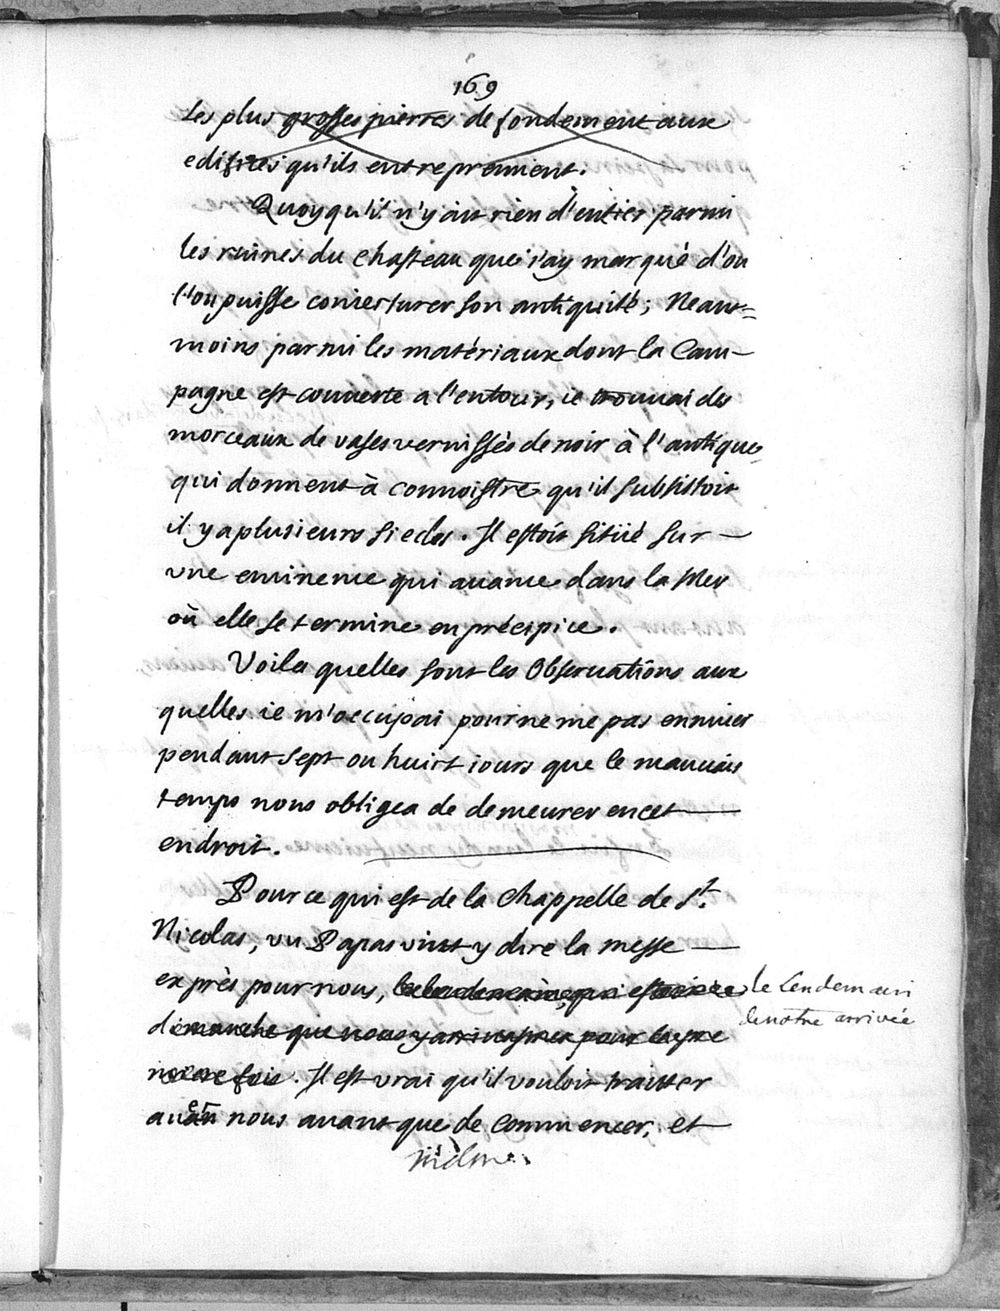 169
Les plus grosses pierres de fondement aux
edifices qu'ils entreprennent.
Quoyqu'il n'y ait rien d'entier parmi
les ruines du chasteau que i'ay marqué d'ou
l'on puisse coniecturer son antiquité; Neant=
moins parmi les matériaux dont la Cam-
pagne est couuerte a l'entour, ie trouuai des
morceaux de vases vernissés de noir à l'antique,
qui donnent à connoistre qu'il subsistoit
il y a plusieurs siecles. Il estoit sitüé sur -
vne eminence qui auance dans la Mer
où elle se termine en précipice.
Voila quelles sont les Obseruations aux
quelles ie m'occupai pour ne me pas ennuier
pendant sept ou huict iours que le mauuais
temps nous obligea de demeurer en cet
endroit.
Pource qui est de la chappelle de St.
Nicolas, vn Papas vint y dire la messe
exprès pour nous, le lendemain
de notre arrivée
dimanche que nous y arriuasmes pour la pre
miere fois. Il est vrai qu'il vouloit traitter
auec nous auant que de commencer, et
même